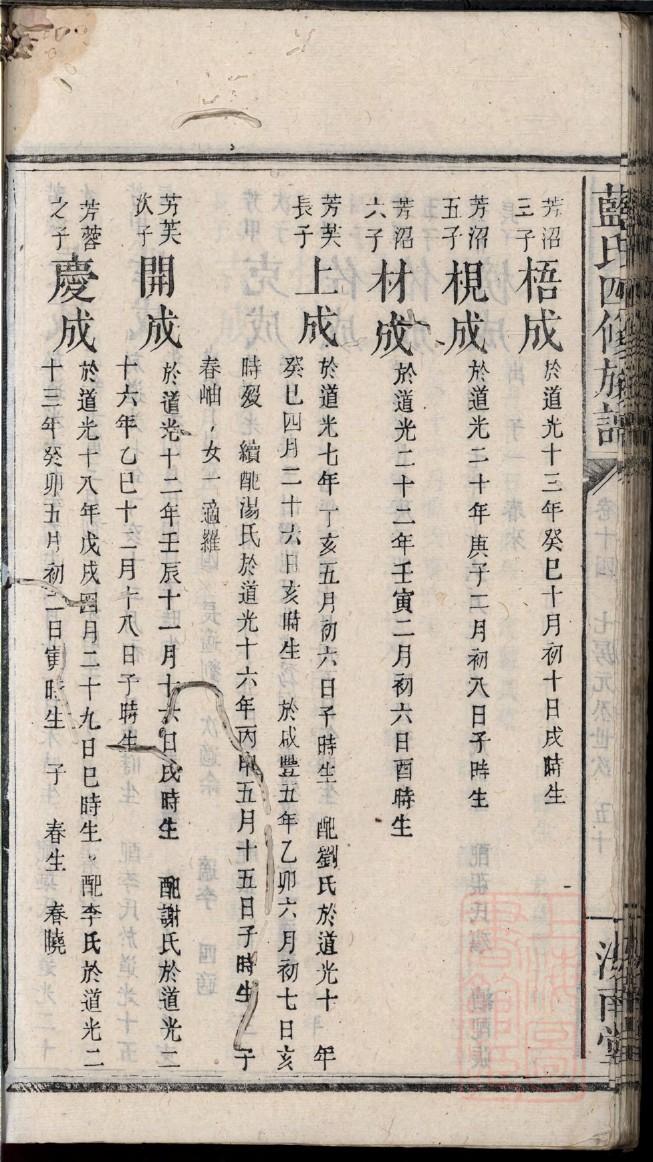 藍氏四修族譜 卷十四 七房元丞世次 五十 汝南堂
芳沼三子 梧成 於道光十三年癸巳十月初十日戌時生
芳沼五子 梘成 於道光二十年庚子二月初八日子時生
芳沼六子 材成 於道光二十二年壬寅二月初六日酉時生
芳芙長子 上成 於道光七年丁亥五月初六日子時生 配劉氏於道光十 年
癸巳四月二十六日亥時生 於咸豐五年乙卯六月初七日亥
時歿 續配湯氏於道光十六年丙申五月十五日子時生 子
春岫 女一適羅
芳芙次子 開成 於道光十二年壬辰十一月十六日戌時生 配謝氏於道光二
十六年乙巳十二月十八日子時生
芳蓉之子 慶成 於道光十八年戊戌四月二十九日巳時生 配李氏於道光二
十三年癸卯五月初二日寅時生 子 春生 春曉